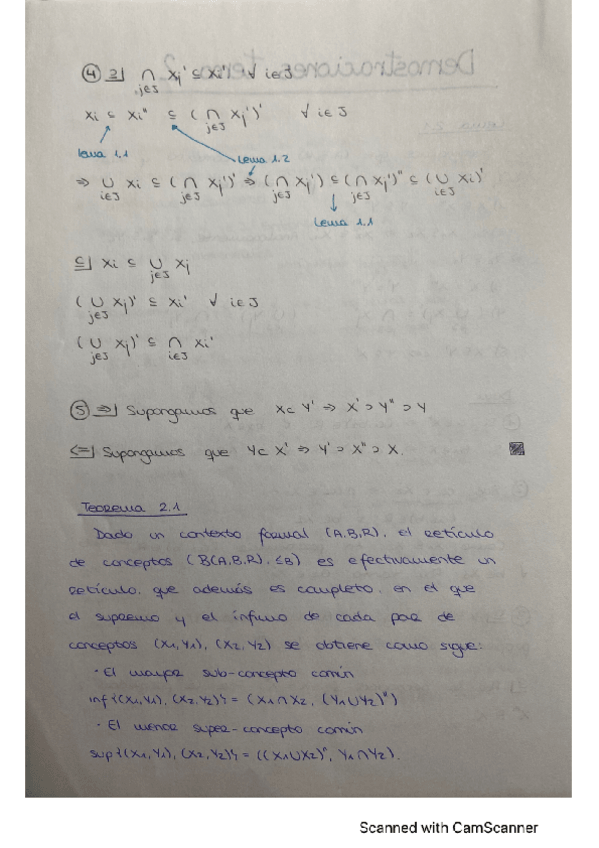 ④ ⊇| ∩ Xj' ⊆ Xi' ∀ i∈J
j∈J
Xi ⊆ Xi'' ⊆ ( ∩ Xj')' ∀ i∈J
j∈J
Lema 1.1 Lema 1.2
⇒ ∪ Xi ⊆ ( ∩ Xj')' ⇒ ( ∩ Xj') ⊆ ( ∩ Xj')'' ⊆ ( ∪ Xi)'
i∈J j∈J j∈J j∈J i∈J
Lema 1.1
⊆| Xi ⊆ ∪ Xj
j∈J
( ∪ Xj)' ⊆ Xi' ∀ i∈J
j∈J
( ∪ Xj)' ⊆ ∩ Xi'
j∈J i∈J
⑤ ⇒| Supongamos que X⊂Y' ⇒ X'⊃Y''⊃Y
<=| Supongamos que Y⊂X' ⇒ Y'⊃X''⊃X.
Teorema 2.1
Dado un contexto formal (A,B,R), el retículo
de conceptos (B(A,B,R), ≤B) es efectivamente un
retículo, que además es completo, en el que
el supremo y el ínfimo de cada par de
conceptos (X1,Y1), (X2,Y2) se obtiene como sigue:
· El mayor sub-concepto común
inf{(X1,Y1), (X2,Y2)} = (X1∩X2, (Y1∪Y2)'')
· El menor super-concepto común
sup{(X1,Y1), (X2,Y2)} = ((X1∪X2)'', Y1∩Y2).
Scanned with CamScanner